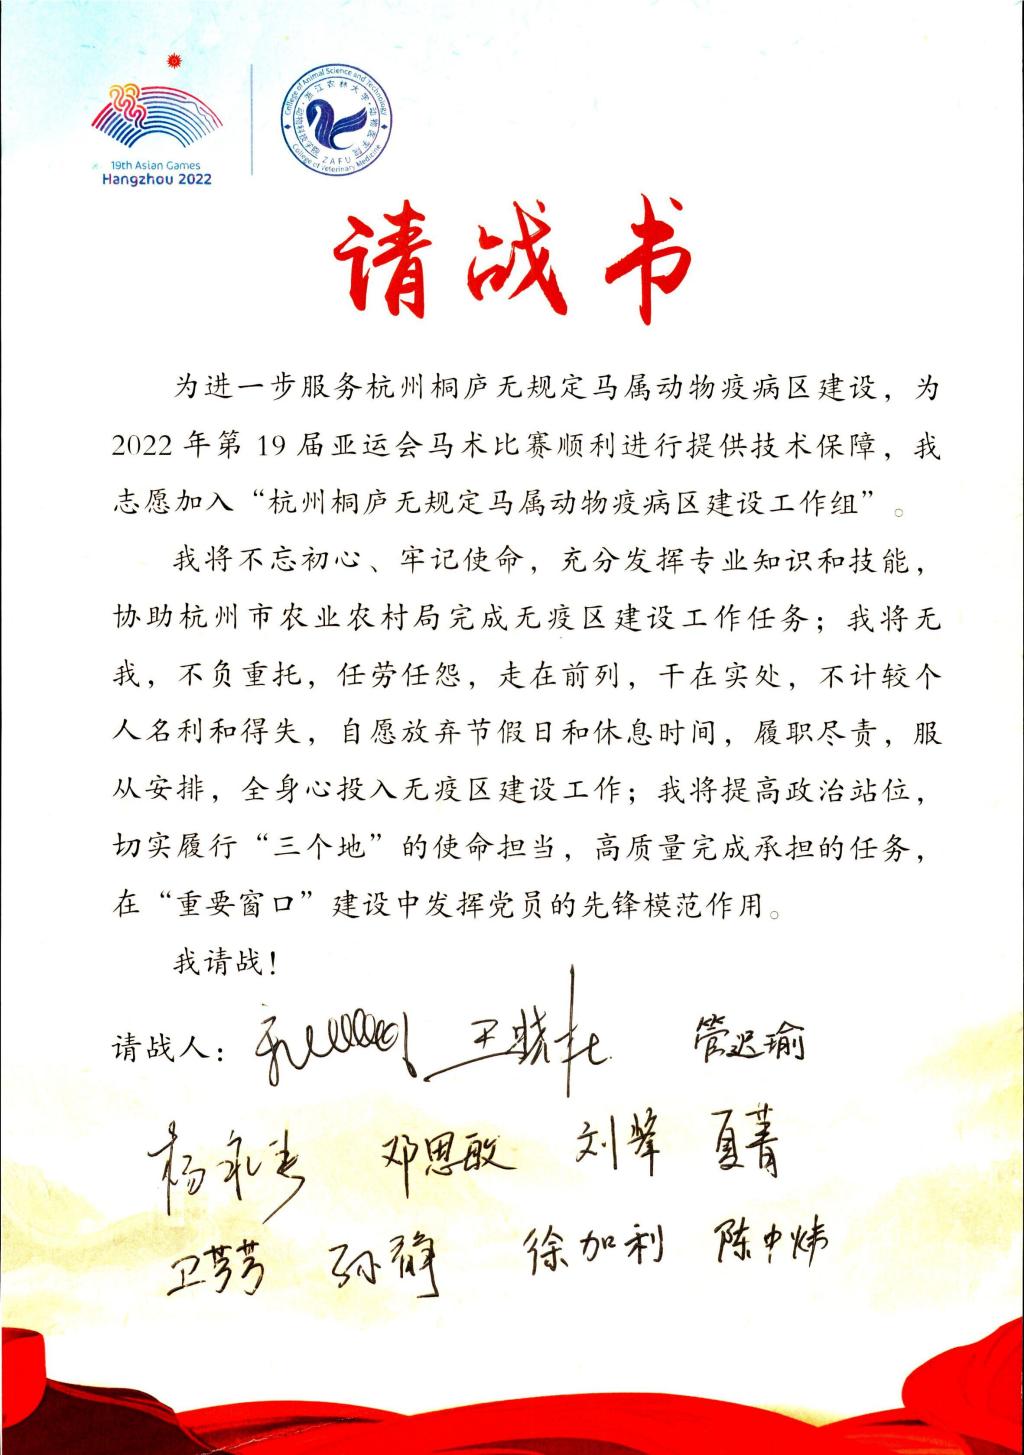 19th Asian Games
Hangzhou 2022
College of Animal Science and Technology
浙江农林大学·动物科技学院·动物医学院
ZAFU
College of Veterinary Medicine
请战书
为进一步服务杭州桐庐无规定马属动物疫病区建设，为
2022年第19届亚运会马术比赛顺利进行提供技术保障，我
志愿加入“杭州桐庐无规定马属动物疫病区建设工作组”。
我将不忘初心、牢记使命，充分发挥专业知识和技能，
协助杭州市农业农村局完成无疫区建设工作任务；我将无
我，不负重托，任劳任怨，走在前列，干在实处，不计较个
人名利和得失，自愿放弃节假日和休息时间，履职尽责，服
从安排，全身心投入无疫区建设工作；我将提高政治站位，
切实履行“三个地”的使命担当，高质量完成承担的任务，
在“重要窗口”建设中发挥党员的先锋模范作用。
我请战！
请战人： 王晓杜 管迟瑜
杨永春 邓思敏 刘峰 夏菁
卫芳芳 孙静 徐加利 陈中炜